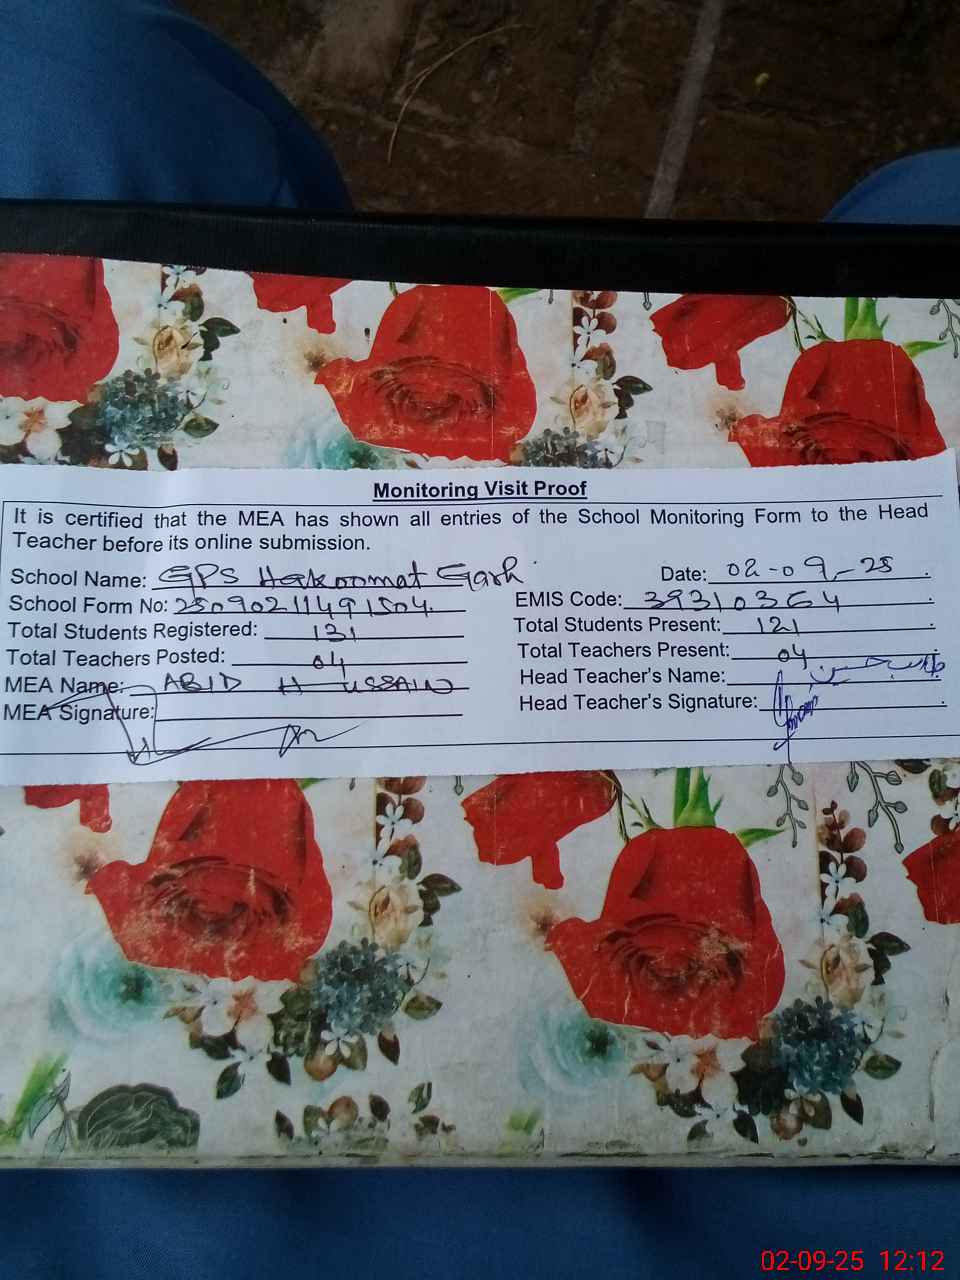 Monitoring Visit Proof
It is certified that the MEA has shown all entries of the School Monitoring Form to the Head
Teacher before its online submission.
School Name: GPS Hakoomat Garh Date: 02-09-25
School Form No: 25090211491504 EMIS Code: 39310364
Total Students Registered: 131 Total Students Present: 121
Total Teachers Posted: 04 Total Teachers Present: 04
MEA Name: ABID HUSSAIN Head Teacher's Name: طالب حسین
MEA Signature: Head Teacher's Signature:
02-09-25 12:12